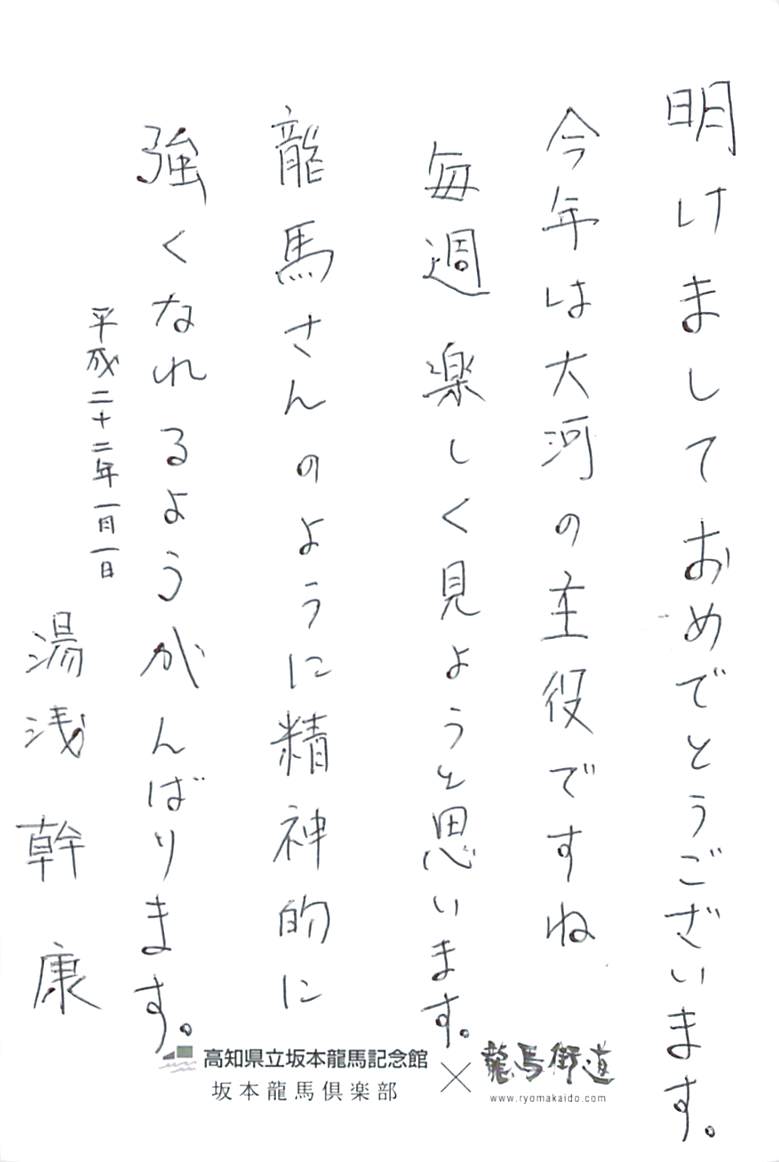 明けましておめでとうございます。
今年は大河の主役ですね
毎週楽しく見ようと思います。
龍馬さんのように精神的に
強くなれるようがんばります。
平成二十二年一月一日
湯浅幹康
高知県立坂本龍馬記念館
坂本龍馬倶楽部
×
龍馬街道
www.ryomakaido.com